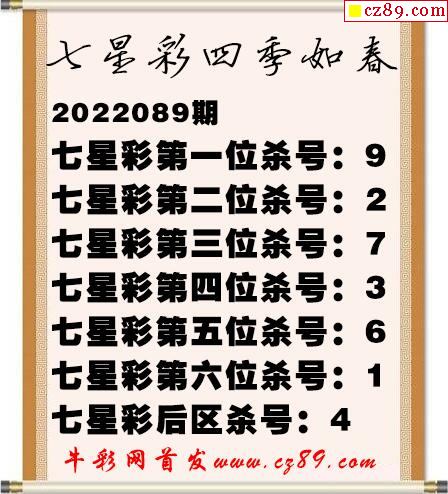 cz89.com
七星彩四季如春
2022089期
七星彩第一位杀号：9
七星彩第二位杀号：2
七星彩第三位杀号：7
七星彩第四位杀号：3
七星彩第五位杀号：6
七星彩第六位杀号：1
七星彩后区杀号：4
牛彩网首发www.cz89.com